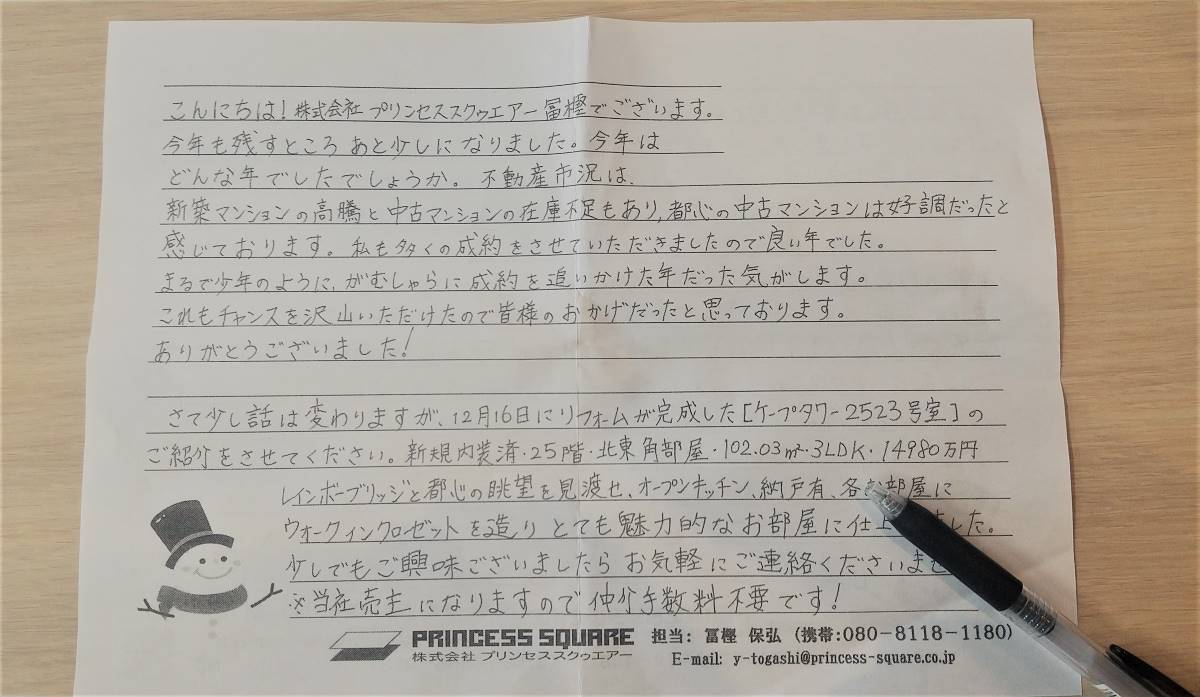 こんにちは!株式会社プリンセススクゥエアー冨樫でございます。
今年も残すところあと少しになりました。今年は
どんな年でしたでしょうか。不動産市況は、
新築マンションの高騰と中古マンションの在庫不足もあり、都心の中古マンションは好調だったと
感じております。私も多くの成約をさせていただきましたので良い年でした。
まるで少年のように、がむしゃらに成約を追いかけた年だった気がします。
これもチャンスを沢山いただけたので皆様のおかげだったと思っております。
ありがとうございました!
さて少し話は変わりますが、12月16日にリフォームが完成した[ケープタワー2523号室]の
ご紹介をさせてください。新規内装済・25階・北東角部屋・102.03㎡・3LDK・14980万円
レインボーブリッジと都心の眺望を見渡せ、オープンキッチン、納戸有、各お部屋に
ウォークィンクロゼットを造りとても魅力的なお部屋に仕上 ました。
少しでもご興味ございましたらお気軽にご連絡くださいませ
※当社売主になりますので仲介手数料不要です!
PRINCESS SQUARE 担当: 冨樫 保弘 (携帯:080-8118-1180)
株式会社 プリンセススクゥエアー E-mail: y-togashi@princess-square.co.jp